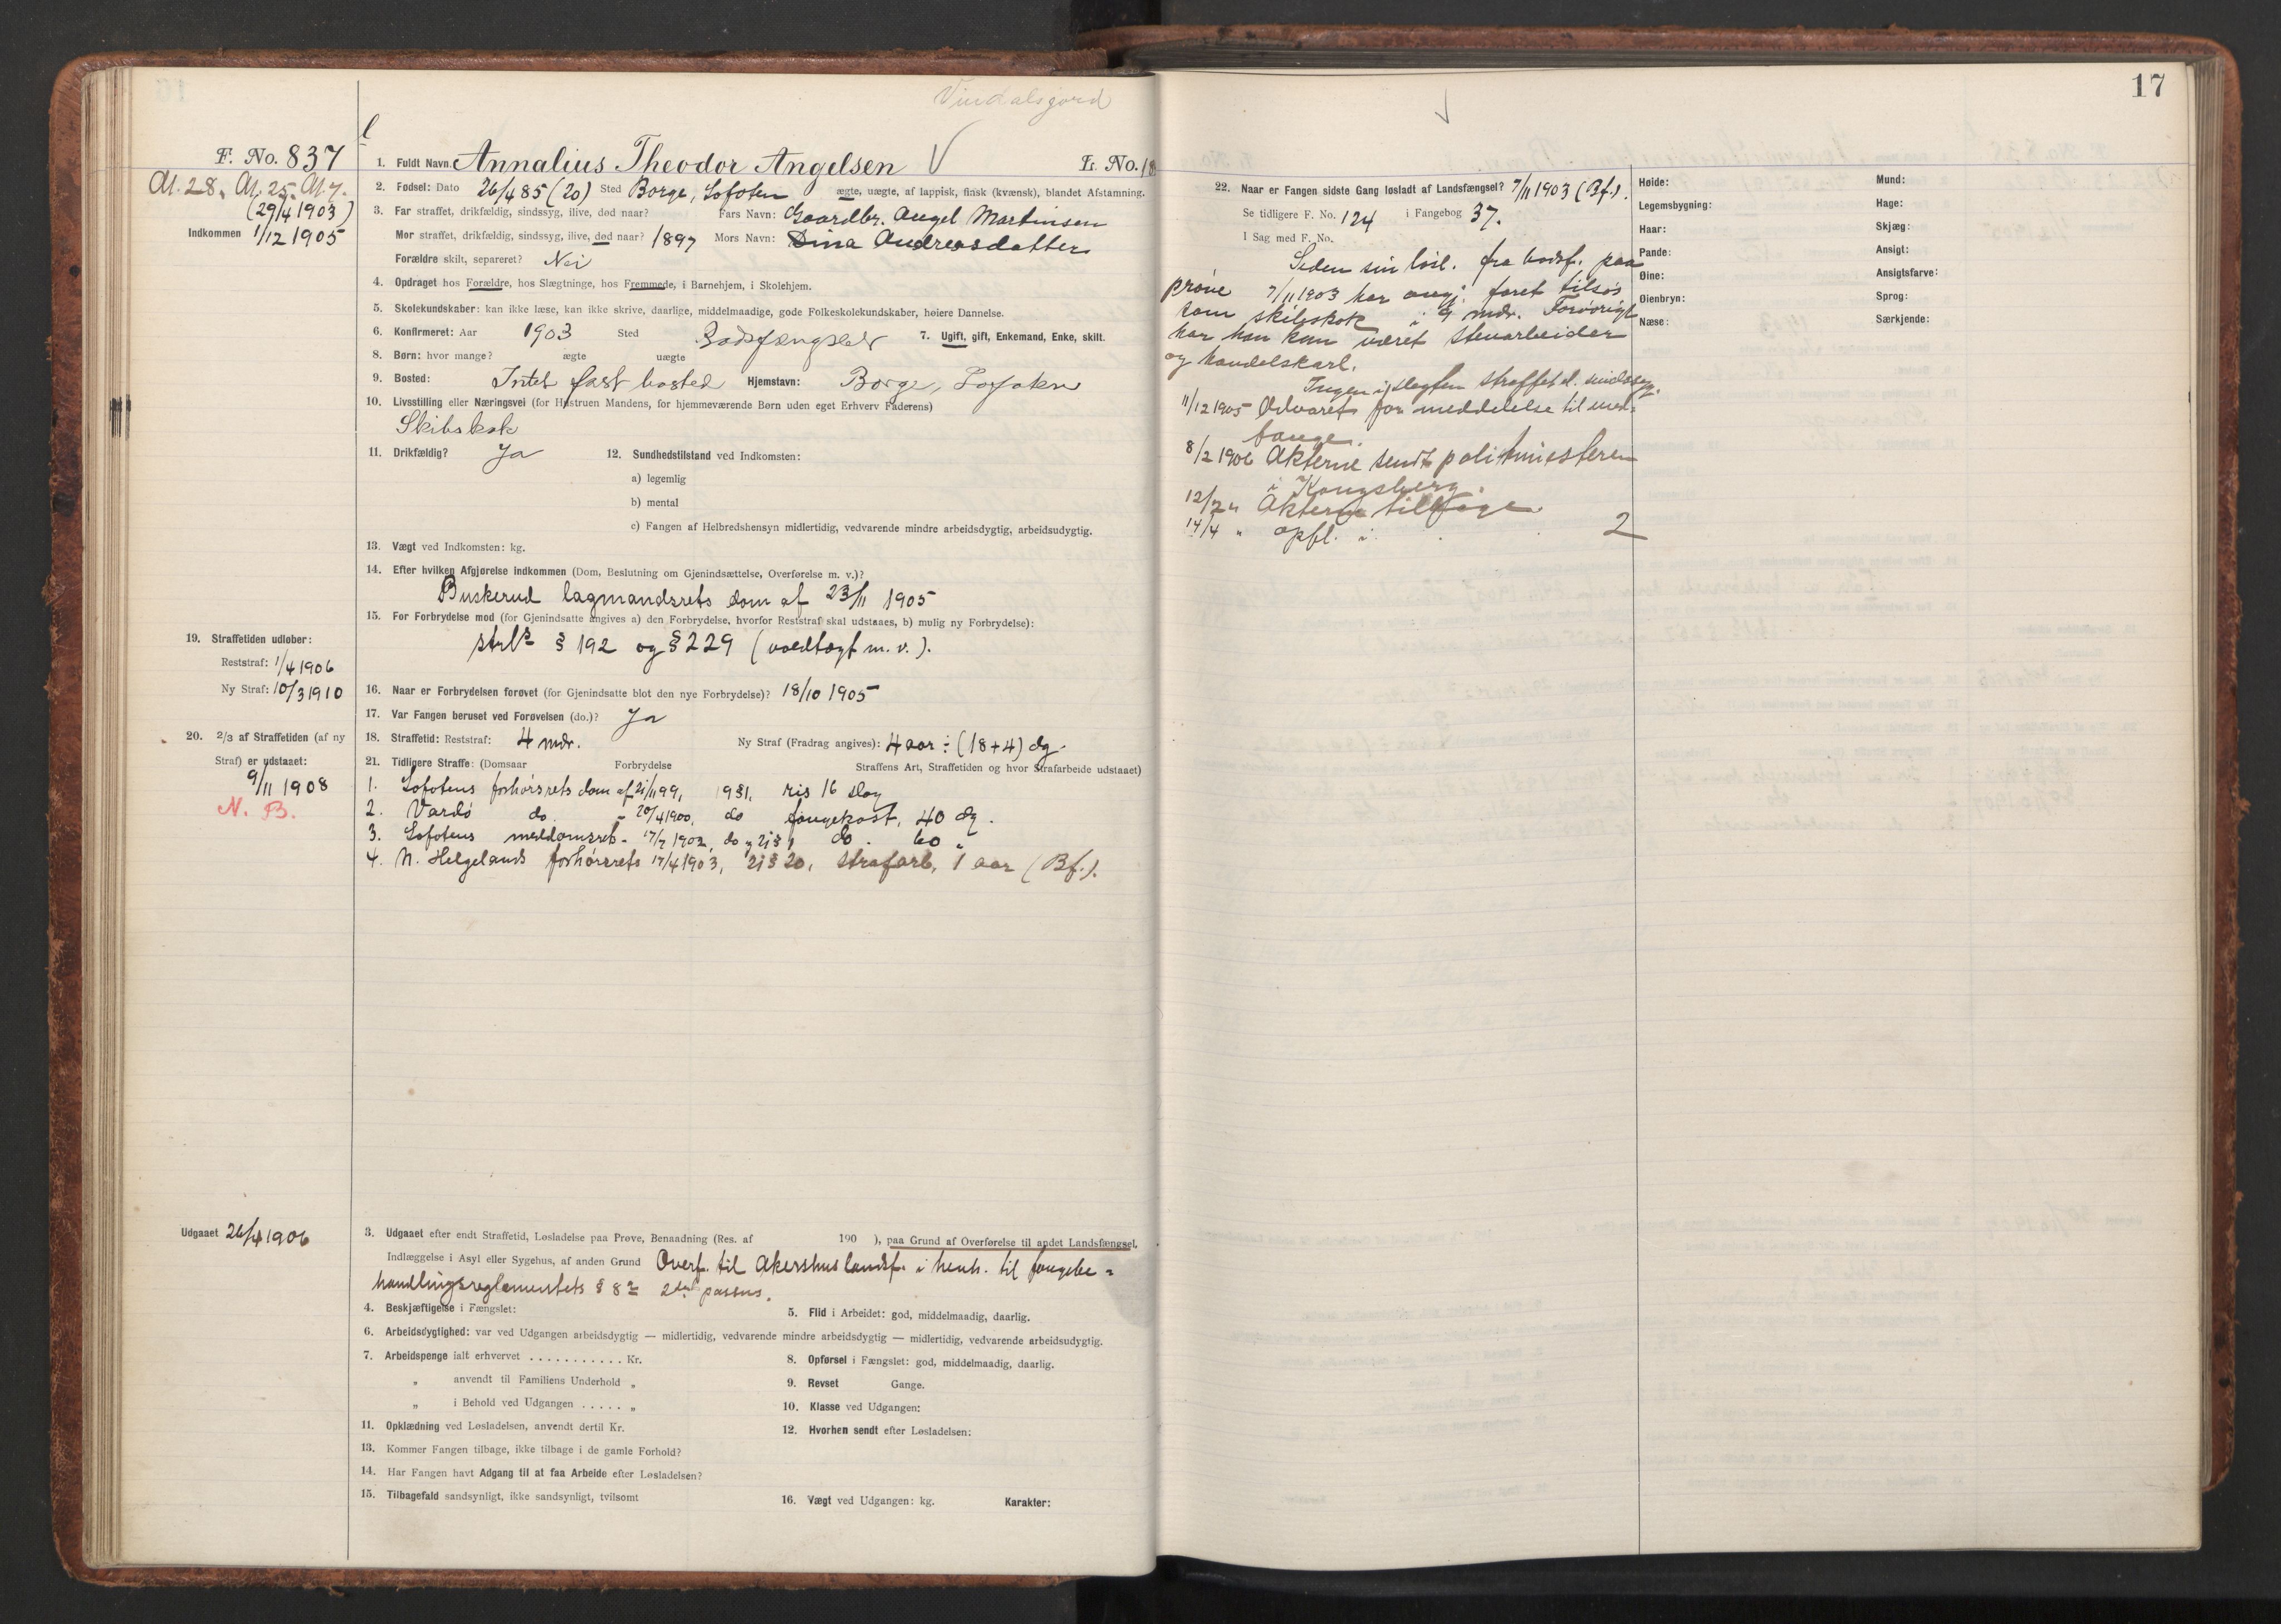 Vindalsgord
F. No. 837
1. Fuldt Navn. Annalius Theodor Angelsen V
L. No.
Al. 28. Al. 25. Al. 7.
(29/4 1903)
Indkommen 1/12 1905
2. Fødsel: Dato 26/4 85 (20) Sted Borge, Lofoten ægte, uægte, af lappisk, finsk (kvænsk), blandet Afstamning.
3. Far straffet, drikfældig, sindssyg, ilive, død naar? Fars Navn: Gaardbr. Angel Martinsen
Mor straffet, drikfældig, sindssyg, ilive, død naar? 1897 Mors Navn: Dina Andreasdatter
Forældre skilt, separeret? Nei
4. Opdraget hos Forældre, hos Slægtninge, hos Fremmede, i Barnehjem, i Skolehjem.
5. Skolekundskaber: kan ikke læse, kan ikke skrive, daarlige, middelmaadige, gode Folkeskolekundskaber, høiere Dannelse.
6. Konfirmeret: Aar 1903 Sted Bodsfængslet 7. Ugift, gift, Enkemand, Enke, skilt.
8. Børn: hvor mange? ægte uægte
9. Bosted: Intet fast bosted Hjemstavn: Borge, Lofoten
10. Livsstilling eller Næringsvei (for Hustruen Mandens, for hjemmeværende Børn uden eget Erhverv Faderens)
Skibskok
11. Drikfældig? Ja 12. Sundhedstilstand ved Indkomsten:
a) legemlig
b) mental
c) Fangen af Helbredshensyn midlertidig, vedvarende mindre arbeidsdygtig, arbeidsudygtig.
13. Vægt ved Indkomsten: kg.
14. Efter hvilken Afgjørelse indkommen (Dom, Beslutning om Gjenindsættelse, Overførelse m. v.)?
Buskerud lagmandsrets dom af 23/11 1905
15. For Forbrydelse mod (for Gjenindsatte angives a) den Forbrydelse, hvorfor Reststraf skal udstaaes, b) mulig ny Forbrydelse):
strl's § 192 og § 229 (voldtægt m. v.).
19. Straffetiden udløber:
Reststraf: 1/4 1906
Ny Straf: 10/3 1910
16. Naar er Forbrydelsen forøvet (for Gjenindsatte blot den nye Forbrydelse)? 18/10 1905
17. Var Fangen beruset ved Forøvelsen (do.)? Ja
20. 2/3 af Straffetiden (af ny
Straf) er udstaaet:
9/11 1908
N. B.
18. Straffetid: Reststraf: 4 mdr. Ny Straf (Fradrag angives): 4 aar ÷ (18+4) dg.
21. Tidligere Straffe: (Domsaar Forbrydelse Straffens Art, Straffetiden og hvor Strafarbeide udstaaet)
1. Lofotens forhørsrets dom af 21/11 99, 19 § 1, ris 16 slag
2. Vardø do. - 20/4 1900, do fangekost, 40 dg.
3. Lofotens meddomsret - 17/7 1902, do og 21 § 1 do. 60 "
4. N. Helgelands forhørsrets 17/4 1903, 21 § 20, strafarb. 1 aar (Bf.).
Udgaaet 26/4 1906
3. Udgaaet efter endt Straffetid, Løsladelse paa Prøve, Benaadning (Res. af 190 ), paa Grund af Overførelse til andet Landsfængsel,
Indlæggelse i Asyl eller Sygehus, af anden Grund Overf. til Akershus landsf. i henh. til fangebe=
handlingsreglementets § 8 2det passus.
4. Beskjæftigelse i Fængslet: 5. Flid i Arbeidet: god, middelmaadig, daarlig.
6. Arbeidsdygtighed: var ved Udgangen arbeidsdygtig — midlertidig, vedvarende mindre arbeidsdygtig — midlertidig, vedvarende arbeidsudygtig.
7. Arbeidspenge ialt erhvervet . . . . . . . . . . . Kr. 8. Opførsel i Fængslet: god, middelmaadig, daarlig.
„ anvendt til Familiens Underhold „ 9. Revset Gange.
„ i Behold ved Udgangen . . . . . „ 10. Klasse ved Udgangen:
11. Opklædning ved Løsladelsen, anvendt dertil Kr. 12. Hvorhen sendt efter Løsladelsen:
13. Kommer Fangen tilbage, ikke tilbage i de gamle Forhold?
14. Har Fangen havt Adgang til at faa Arbeide efter Løsladelsen?
15. Tilbagefald sandsynligt, ikke sandsynligt, tvilsomt 16. Vægt ved Udgangen: kg. Karakter:
17
22. Naar er Fangen sidste Gang løsladt af Landsfængsel? 7/11 1903 (Bf.).
Se tidligere F. No. 124 i Fangebog 37.
I Sag med F. No.
Siden sin løsl. fra bodsf. paa
prøve 7/11 1903 har angj. faret tilsøs
som skibskok i 9 mdr. Forøvrigt
har han kun været stenarbeider
og handelskarl.
Ingen i slegten straffet el. sindssyg.
11/12 1905 Advaret for meddelelse til med=
fange.
8/2 1906 Akterne sendt politimesteren
i Kongsberg.
12/2 " Akterne tilbage
14/4 " opfl. i 2
Høide:
Legemsbygning:
Haar:
Pande:
Øine:
Øienbryn:
Næse:
Mund:
Hage:
Skjæg:
Ansigt:
Ansigtsfarve:
Sprog:
Særkjende: